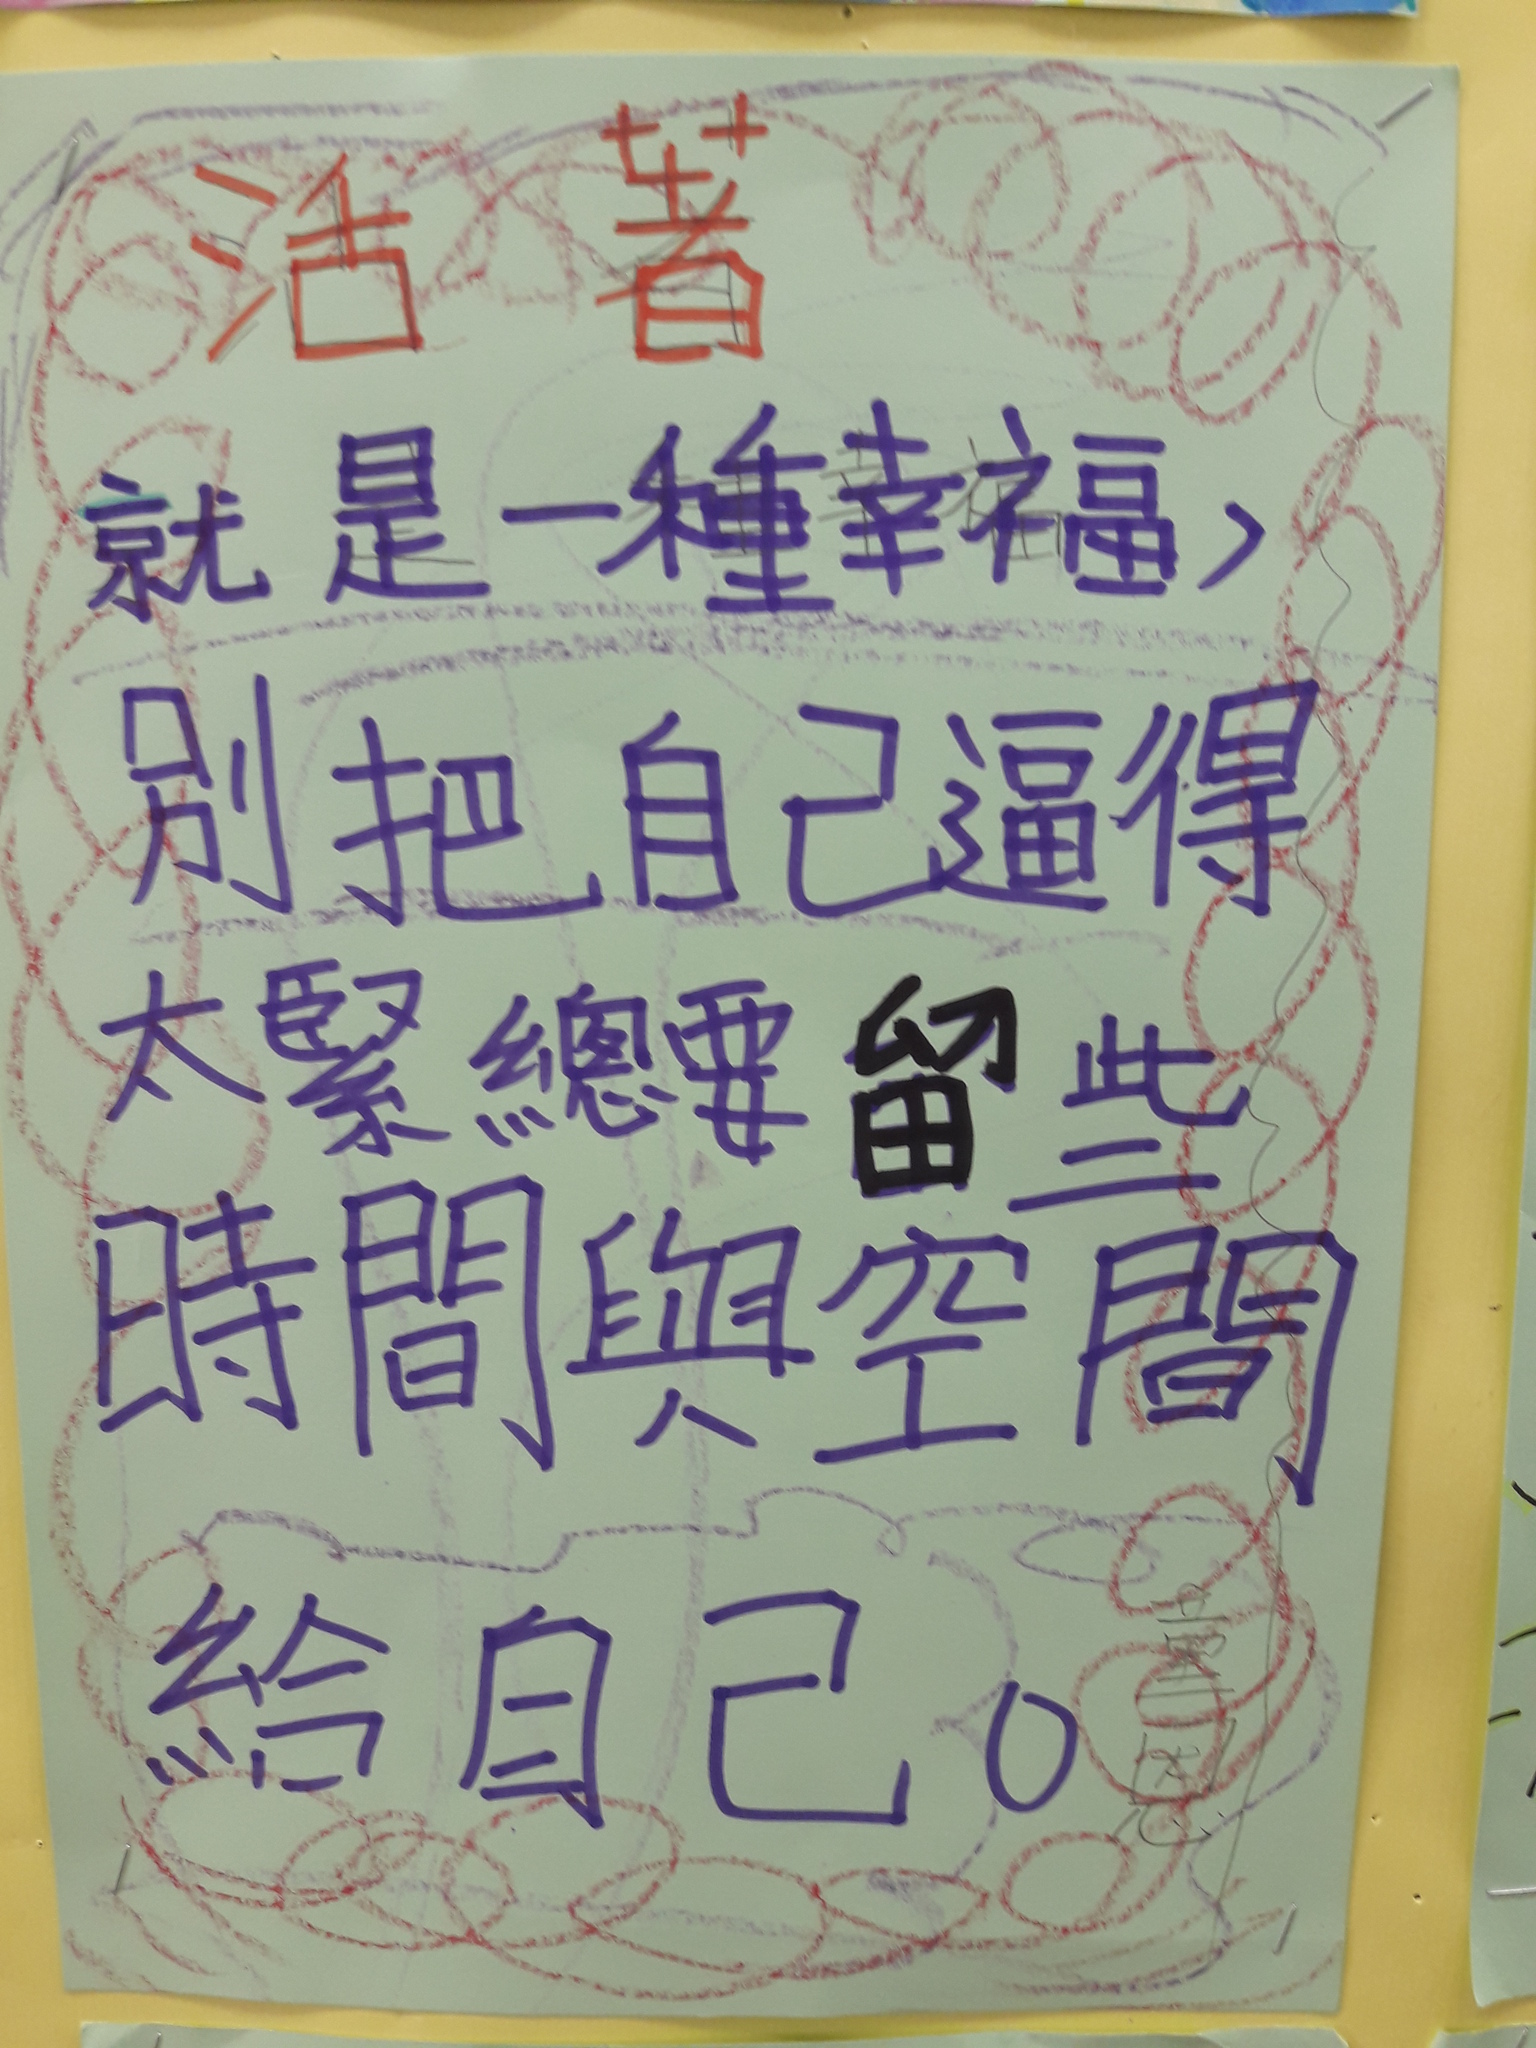 活著
就是一種幸福，
別把自己逼得
太緊總要留些
時間與空間
給自己。